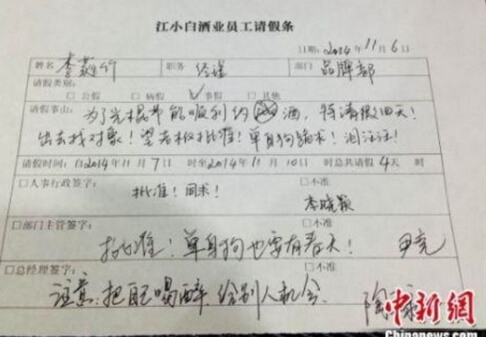 江小白酒业员工请假条
日期：2014年11月6日
署名 李 竹 职务 经理 部门 品牌部
请假类别：
□公假 □病假 ☑事假 □其他
请假事由：为了光棍节能顺利约 酒，特请假四天！
出去找对象！望老板批准！单身狗 求！泪汪汪！
请假时间：自2014年11月7日 时至2014年11月10日 时总共请假4天 时
□人事行政签字： □不准
批准！同求！ 李晓
□部门主管签字： □不准
批准！单身狗也要有春天！ 尹亮
□总经理签字： □不准
注意：把自己喝醉 给别人机会 陶
中新网
Chinanews.com